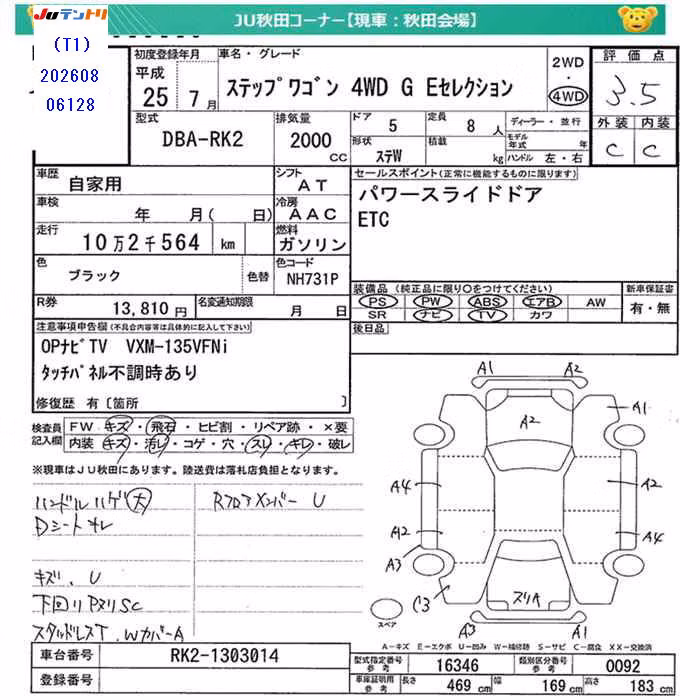 JUテントリ
JU秋田コーナー【現車：秋田会場】
(T1)
202608
06128
初度登録年月
平成
25 7月
車名・グレード
ステップワゴン 4WD G Eセレクション
2WD
・
4WD
評価点
3.5
型式
DBA-RK2
排気量
2000
CC
ドア
5
定員
8人
形状
ステW
積載
kg
ディーラー・並行
モデル年式 年
ハンドル 左・右
外装 内装
C C
車歴
自家用
シフト
AT
車検
年 月( 日)
冷房
AAC
走行
10万2千564 km
燃料
ガソリン
色
ブラック
色替
色コード
NH731P
R券
13,810円
名変通知期限
月 日
セールスポイント(正常に機能するものに限ります)
パワースライドドア
ETC
装備品(純正品に限り〇をつけてください)
PS PW ABS エアB AW
SR ナビ TV カワ
新車保証書
有・無
後日品
注意事項申告欄(不具合内容等は具体的に記入して下さい)
OPナビTV VXM-135VFNi
タッチパネル不調時あり
修復歴 有〔箇所 〕
検査員記入欄
FW キズ・飛石・ヒビ割・リペア跡・×要
内装 キズ・汚レ・コゲ・穴・スレ・キレ・破レ
※現車はJU秋田にあります。陸送費は落札店負担となります。
ハンドルハゲ(大)
RフロアメンバーU
Dシートオレ
キズ、U
下回りPヌリSC
スタッドレスT、WカバーA
A1
A2
A1
A4
A2
A12
A4
A3
C3
ヌリA
A3
A1
スペア
A-キズ E-エクボ U-凹み W-補修跡 S-サビ C-腐食 XX-交換済
車台番号
RK2-1303014
登録番号
型式指定番号 参考
16346
類別区分番号 参考
0092
車庫証明用 参考
長さ 469 cm 幅 169 cm 高さ 183 cm